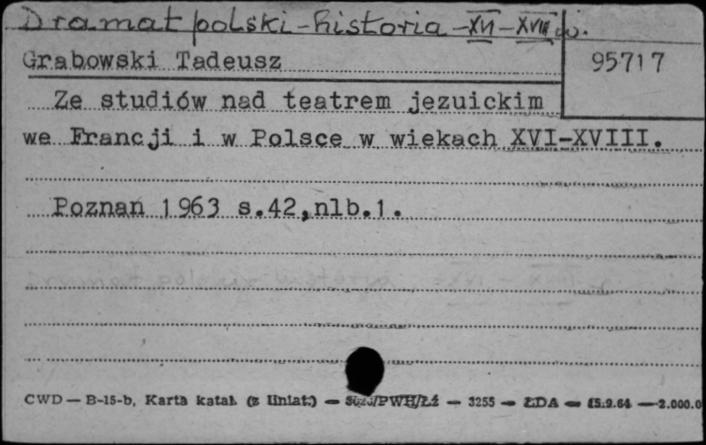 Dramat polski - historia - XVI - XVIII w.
Grabowski Tadeusz
95717
Ze studiów nad teatrem jezuickim
we Francji i w Polsce w wiekach XVI-XVIII.
Poznań 1963 s.42,nlb.1.
CWD — B-15-b, Karta katal. (z liniat.) — /PWH/Łź — 3255 — ŁDA — 15.9.64 — 2.000.0